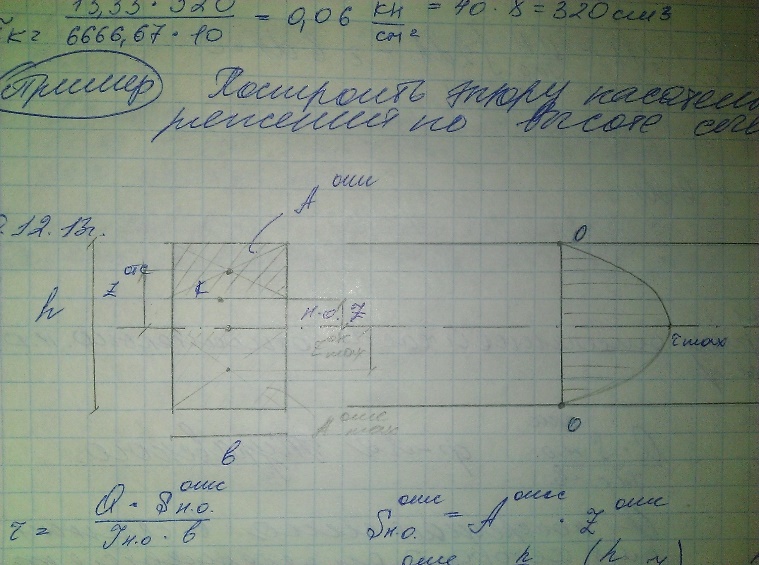 τк = 13,33 · 320 / 6666,67 · 10 = 0,06 кн/см² = 40 · 8 = 320 см3
Пример Построить эпюру касатель
ряжений по высоте сече
.12.13г.
A отс
0
z отс
K
h
н.о. z
z отс max
τmax
A отс max
0
в
τ = Q · S н.о. отс / Jн.о · в
S н.о. отс = A отс · z отс